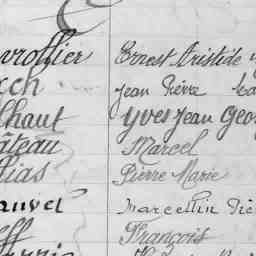 vrollier Ernest Aristide
ech Jean Pierre
lhaut Yves Jean Geo
âteau Marcel
lias Pierre Marie
auvel Marcellin Pie
eff François